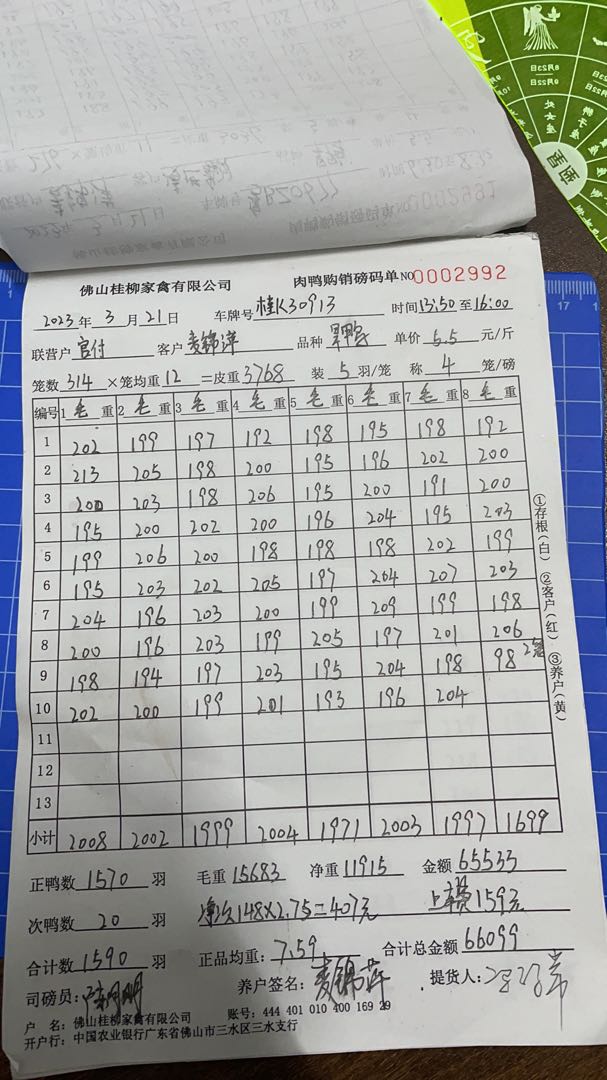 佛山桂柳家禽有限公司 肉鸭购销磅码单 NO 0002992
2023年 3月 21日 车牌号 桂K30913 时间 13:50 至 16:00
联营户 官付 客户 麦锦萍 品种 单价 5.5 元/斤
笼数 314 ×笼均重 12 =皮重 3768 装 5 羽/笼 称 4 笼/磅
编号 1 毛 重 2 毛 重 3 毛 重 4 毛 重 5 毛 重 6 毛 重 7 毛 重 8 毛 重
1 202 199 197 192 198 195 198 192
2 213 205 198 200 195 196 202 200
3 200 203 198 206 195 200 191 200
4 195 200 202 200 196 204 195 203
5 199 206 200 198 198 198 202 199
6 195 203 202 205 197 204 207 203
7 204 196 203 200 199 209 199 198
8 200 196 203 199 205 197 201 206
9 198 194 197 203 195 204 198 98 2笼
10 202 200 199 201 193 196 204
11
12
13
小计 2008 2002 1999 2004 1971 2003 1997 1699
①存根(白) ②客户(红) ③养户(黄)
正鸭数 1570 羽 毛重 15683 净重 11915 金额 65533
次鸭数 20 羽 148×2.75=407元 上车费159元
合计数 1590 羽 正品均重: 7.59 合计总金额 66099
司磅员: 养户签名: 麦锦萍 提货人:
户 名: 佛山桂柳家禽有限公司 账号: 444 401 010 400 169 29
开户行: 中国农业银行广东省佛山市三水区三水支行